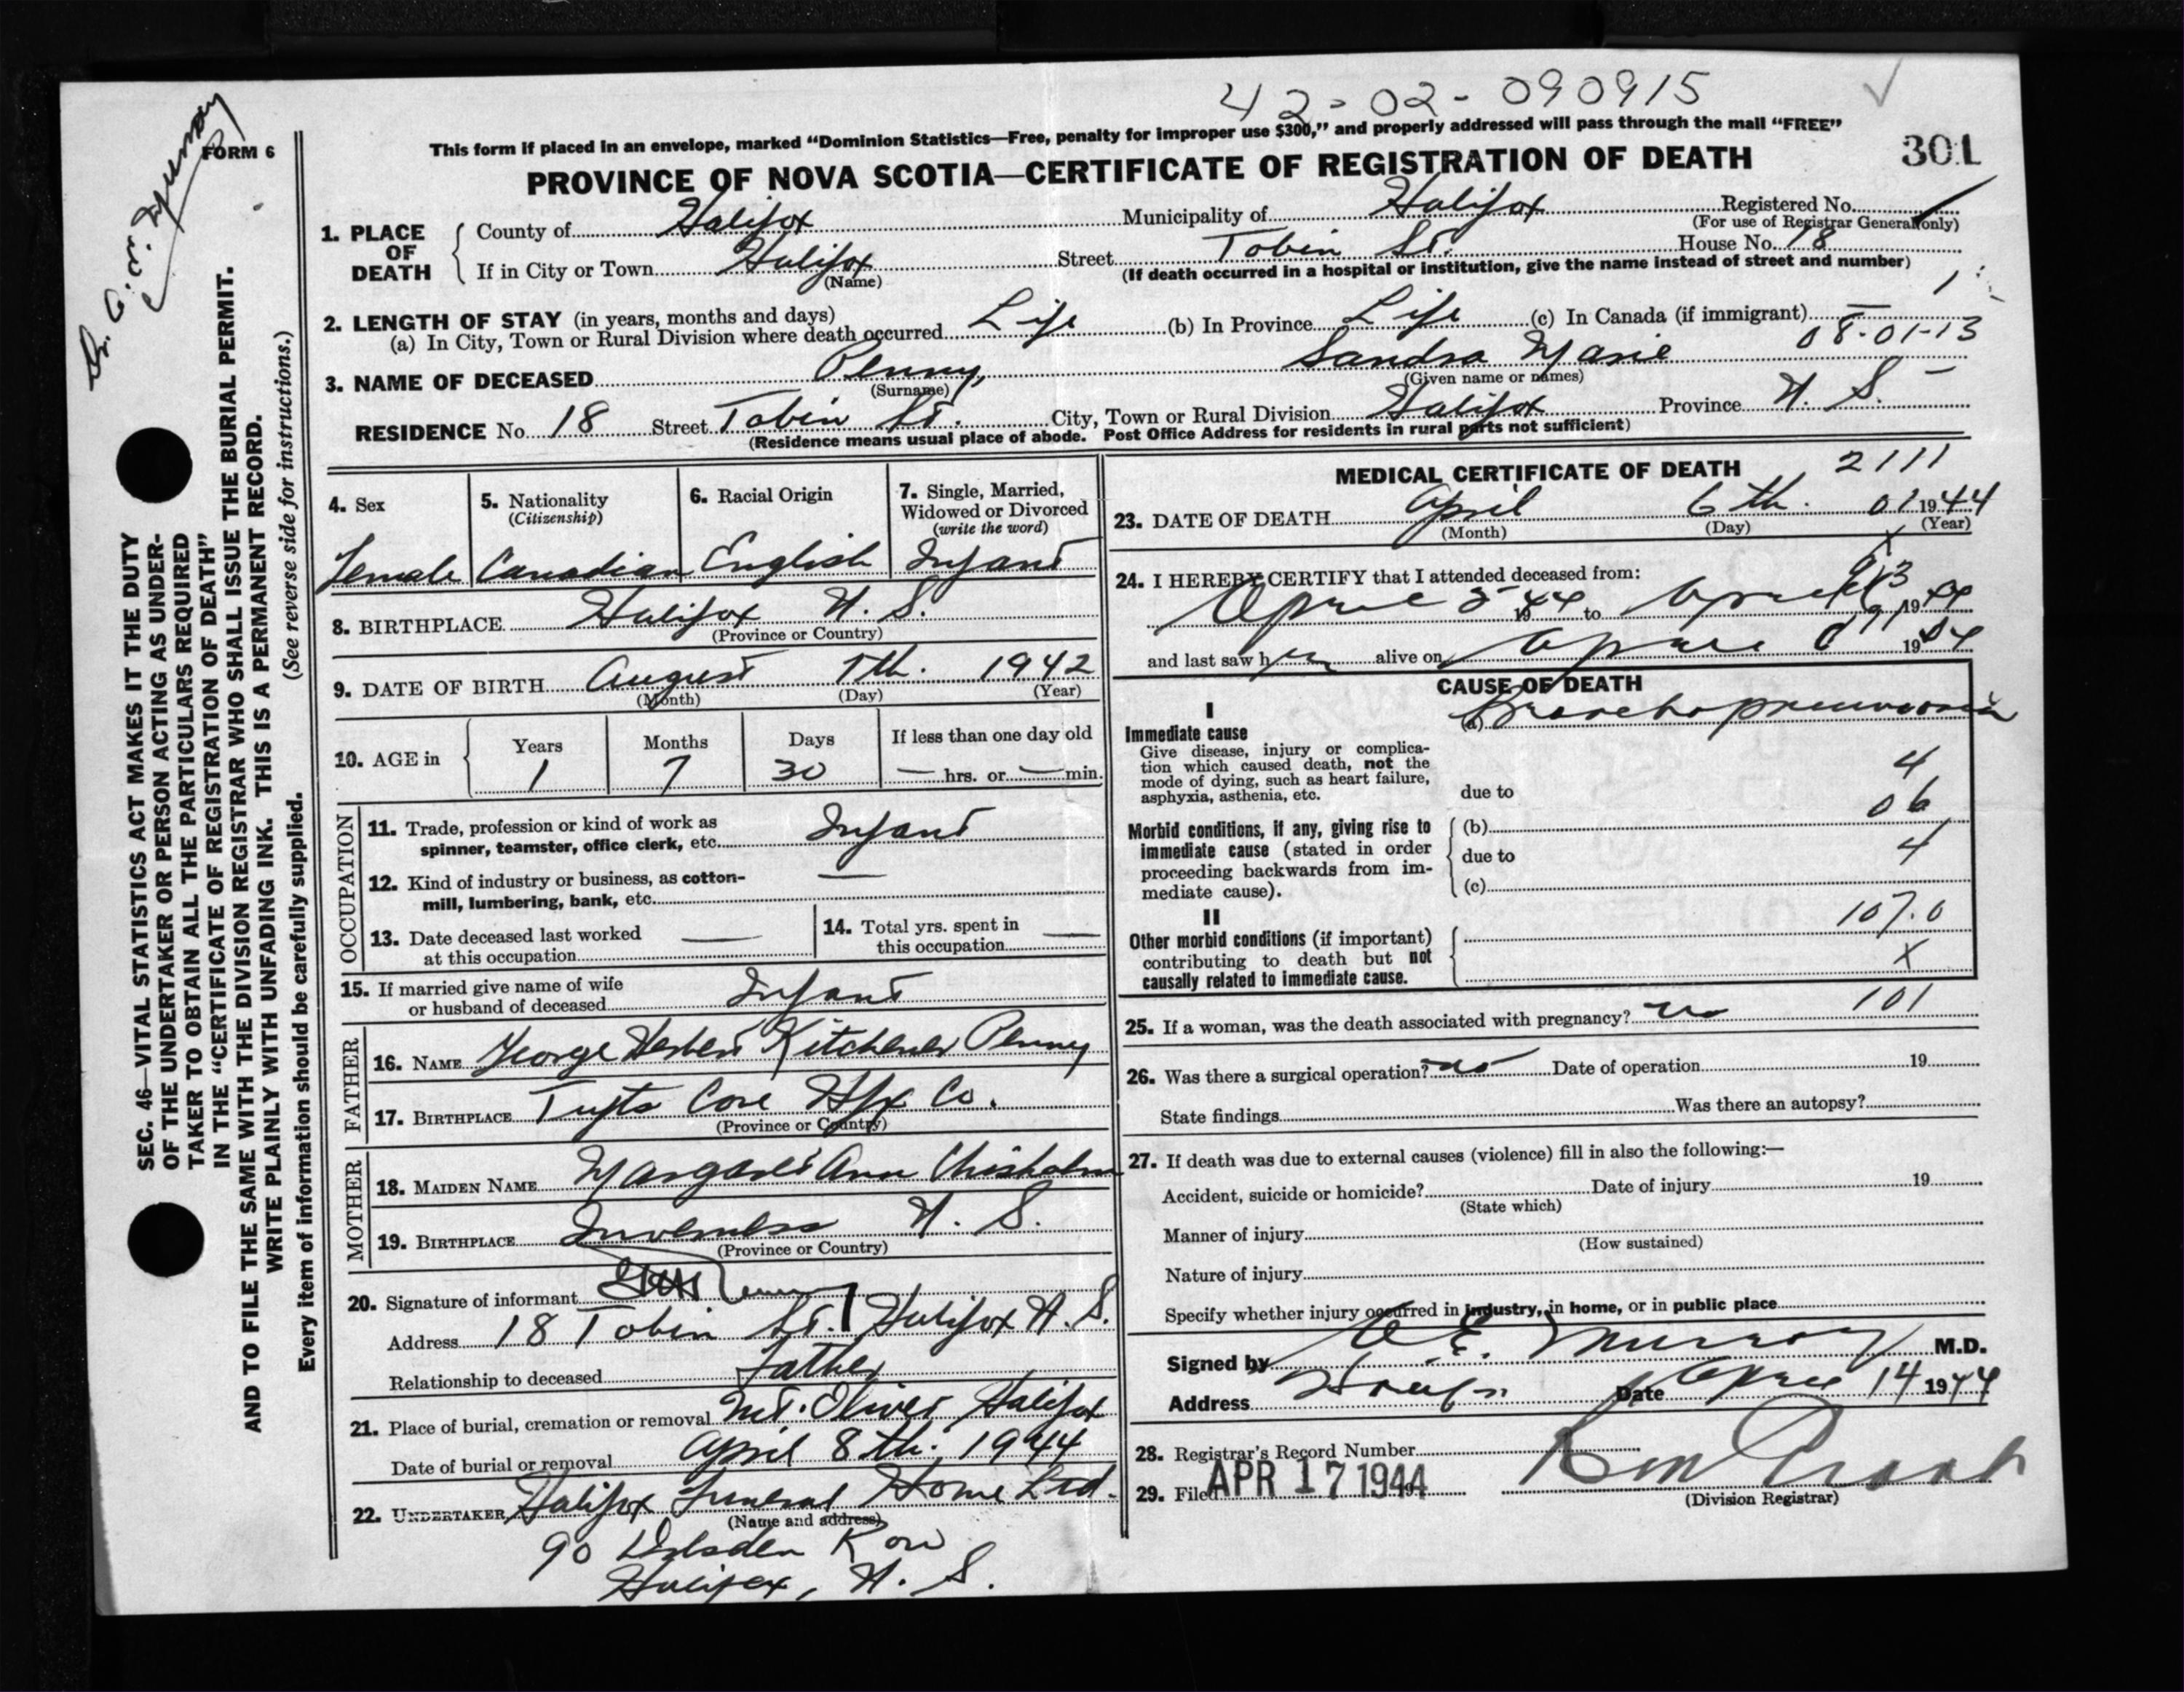 42-02-090915
This form if placed in an envelope, marked “Dominion Statistics—Free, penalty for improper use $300,” and properly addressed will pass through the mail “FREE”
FORM 6
301
PROVINCE OF NOVA SCOTIA—CERTIFICATE OF REGISTRATION OF DEATH
1. PLACE OF DEATH
County of Halifax Municipality of Halifax Registered No.
(For use of Registrar General only)
If in City or Town Halifax Street Tobin St. House No. 18
(Name) (If death occurred in a hospital or institution, give the name instead of street and number)
1
2. LENGTH OF STAY (in years, months and days)
(a) In City, Town or Rural Division where death occurred Life (b) In Province Life (c) In Canada (if immigrant) —
08-01-13
3. NAME OF DECEASED Penny, Sandra Marie
(Surname) (Given name or names)
RESIDENCE No. 18 Street Tobin St. City, Town or Rural Division Halifax Province N. S.
(Residence means usual place of abode. Post Office Address for residents in rural parts not sufficient)
4. Sex
Female
5. Nationality
(Citizenship)
Canadian
6. Racial Origin
English
7. Single, Married, Widowed or Divorced
(write the word)
Infant
8. BIRTHPLACE Halifax N. S.
(Province or Country)
9. DATE OF BIRTH August 7th. 1942
(Month) (Day) (Year)
10. AGE in
Years Months Days If less than one day old
1 7 30 — hrs. or — min.
OCCUPATION
11. Trade, profession or kind of work as
spinner, teamster, office clerk, etc. Infant
12. Kind of industry or business, as cotton-
mill, lumbering, bank, etc. —
13. Date deceased last worked
at this occupation —
14. Total yrs. spent in
this occupation —
15. If married give name of wife
or husband of deceased Infant
FATHER
16. NAME George Herbert Kitchener Penny
17. BIRTHPLACE Tufts Cove Hfx Co.
(Province or Country)
MOTHER
18. MAIDEN NAME Margaret Ann Chisholm
19. BIRTHPLACE Inverness N. S.
(Province or Country)
20. Signature of informant Penny
Address 18 Tobin St. Halifax N. S.
Relationship to deceased Father
21. Place of burial, cremation or removal Mt. Olivet Halifax
Date of burial or removal April 8th. 1944
22. UNDERTAKER Halifax Funeral Home Ltd.
(Name and address)
90 Dresden Row
Halifax, N. S.
MEDICAL CERTIFICATE OF DEATH 2111
23. DATE OF DEATH April 6th. 01 1944
(Month) (Day) (Year)
24. I HEREBY CERTIFY that I attended deceased from:
April 5 1944 to April 6 1944
and last saw her alive on April 6 1944
CAUSE OF DEATH
I
Immediate cause
Give disease, injury or complica-
tion which caused death, not the
mode of dying, such as heart failure,
asphyxia, asthenia, etc.
(a) Bronchopneumonia
4
due to
06
Morbid conditions, if any, giving rise to
immediate cause (stated in order
proceeding backwards from im-
mediate cause).
(b)
due to
4
(c)
II
107.0
Other morbid conditions (if important)
contributing to death but not
causally related to immediate cause.
X
101
25. If a woman, was the death associated with pregnancy? no
26. Was there a surgical operation? no Date of operation 19
State findings Was there an autopsy?
27. If death was due to external causes (violence) fill in also the following:—
Accident, suicide or homicide? Date of injury 19
(State which)
Manner of injury
(How sustained)
Nature of injury
Specify whether injury occurred in industry, in home, or in public place
Signed by Murray M.D.
Address Date April 14 1944
28. Registrar's Record Number
29. Filed APR 17 1944
(Division Registrar)
SEC. 46—VITAL STATISTICS ACT MAKES IT THE DUTY
OF THE UNDERTAKER OR PERSON ACTING AS UNDER-
TAKER TO OBTAIN ALL THE PARTICULARS REQUIRED
IN THE “CERTIFICATE OF REGISTRATION OF DEATH”
AND TO FILE THE SAME WITH THE DIVISION REGISTRAR WHO SHALL ISSUE THE BURIAL PERMIT.
WRITE PLAINLY WITH UNFADING INK. THIS IS A PERMANENT RECORD.
(See reverse side for instructions.)
Every item of information should be carefully supplied.